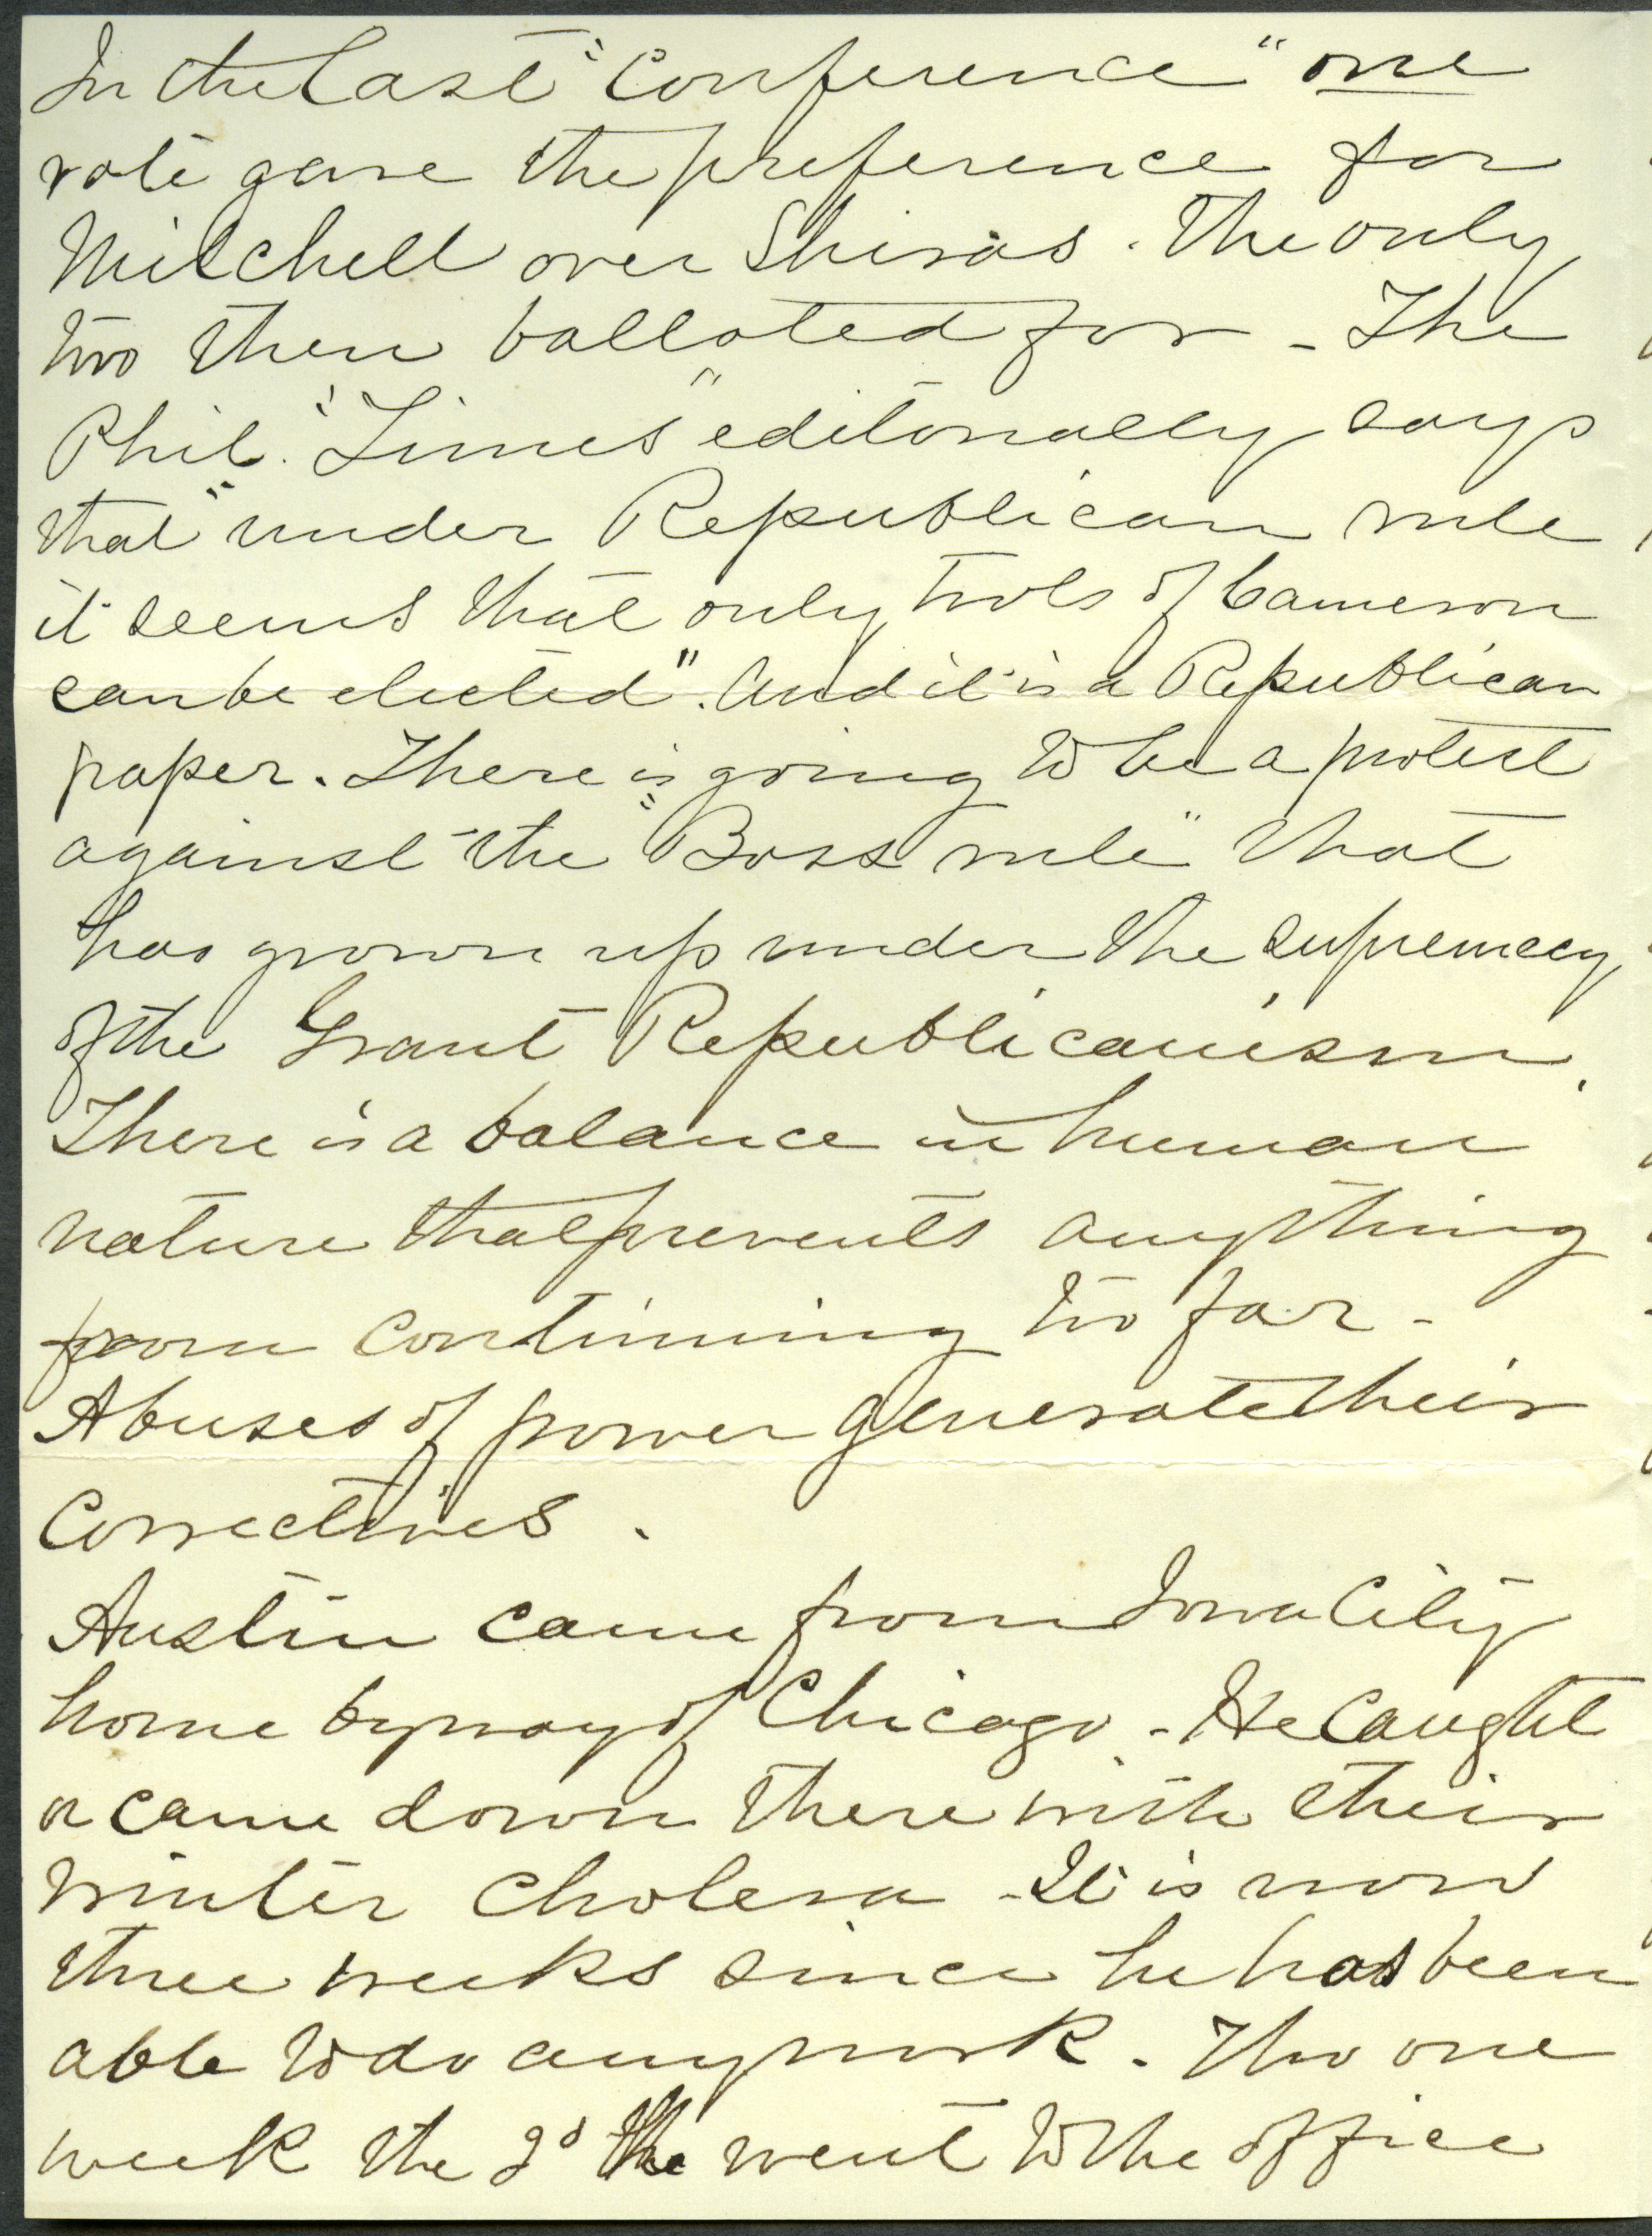 In the last "Conference" one
vote gave the preference for
Mitchell over Shiras. The only
two then balloted for - The
Phil. "Times" editorially says
that "under Republican rule
it seems that only tools of Cameron
can be elected". And it is a Republican
paper. There is going to be a protest
against the "Boss rule" that
has grown up under the supremecy
of the Grant Republicanism.
There is a balance in human
nature that prevents anything
from continuing too far -
Abuses of power generate their
Correctives.
Austin came from Iowa City
home by way of Chicago - He Caught
or came down there with their
Winter Cholera - It is now
three weeks since he has been
able to do any work. Tho one
week the 2d he went to the office